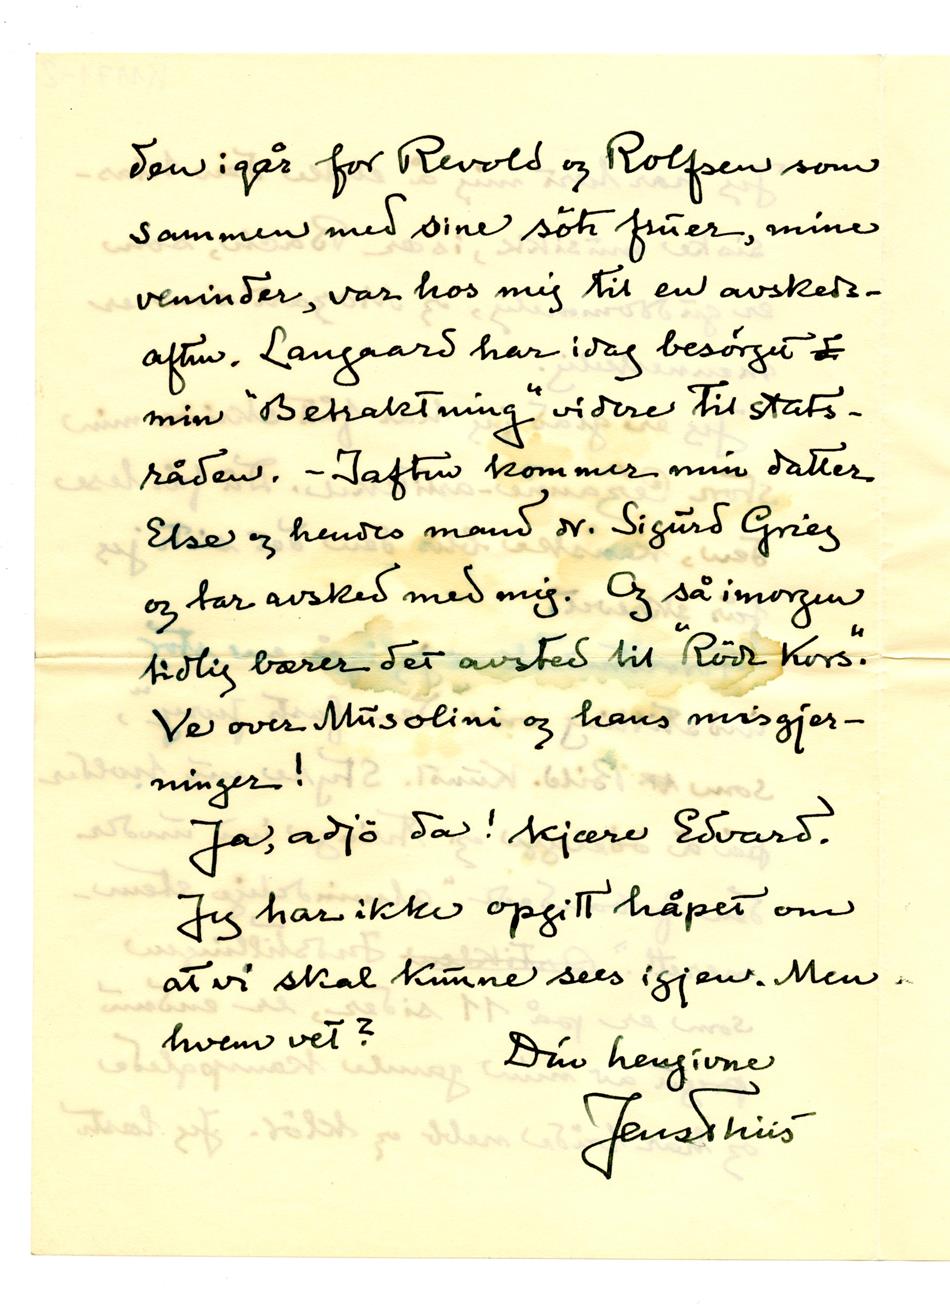 den igår for Revold og Rolfsen som
sammen med sine söte frúer, mine
veninder, var hos mig til en avskeds-
aften. Langaard har idag besörget
min "Betraktning" videre til stats-
råden. - Iaften kommer min datter
Else og hendes mand dr. Sigúrd Grieg
og tar avsked med mig. Og så imorgen
tidlig bærer det avsted til "Röde Kors".
Ve over Músolini og hans misgjer-
ninger!
Ja, adjö da! kjære Edvard.
Jeg har ikke opgitt håpet om
at vi skal kúnne sees igjen. Men
hvem vet?
Din hengivne
Jens Thiis